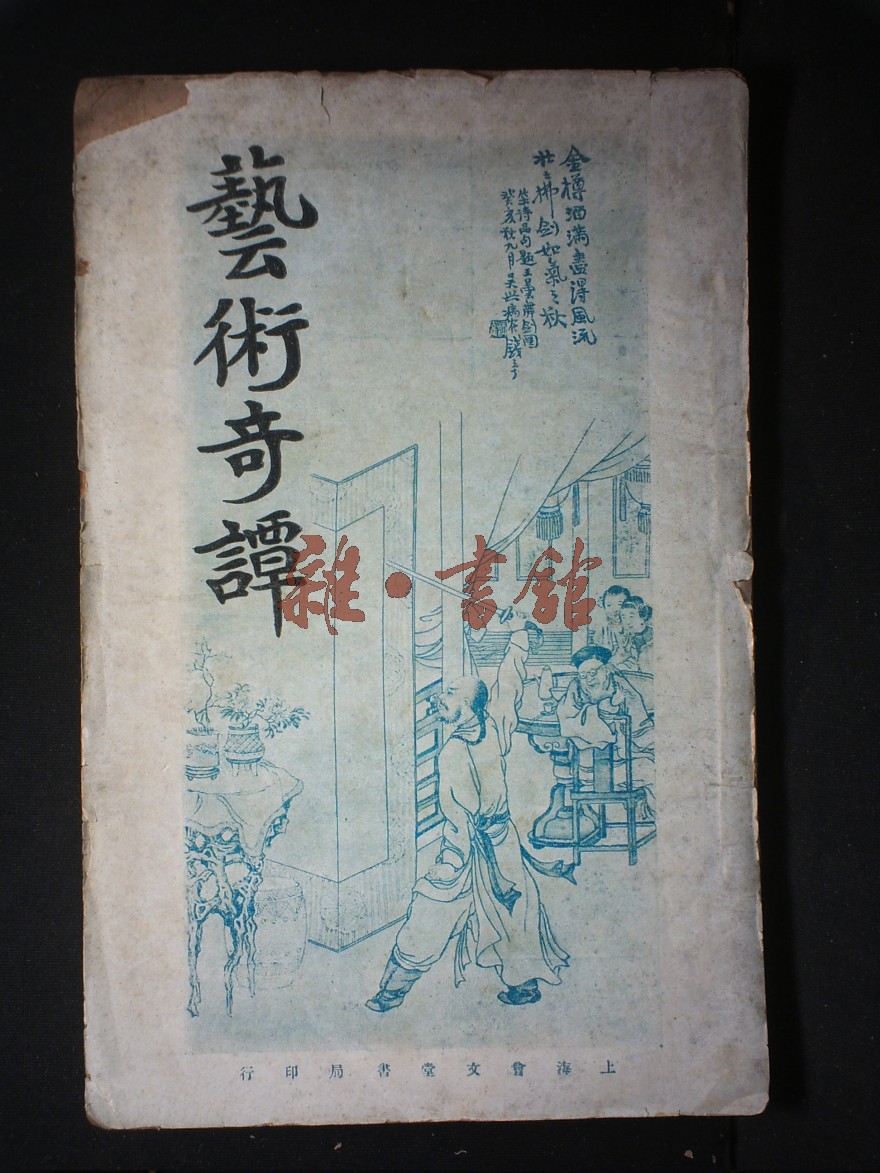 藝術奇譚
金樽酒滿盡得風流
壯士拂劍如氣之秋
集詩品句題王曇舞劍圖
癸亥秋九月吳興病
雜·書館
上海會文堂書局印行